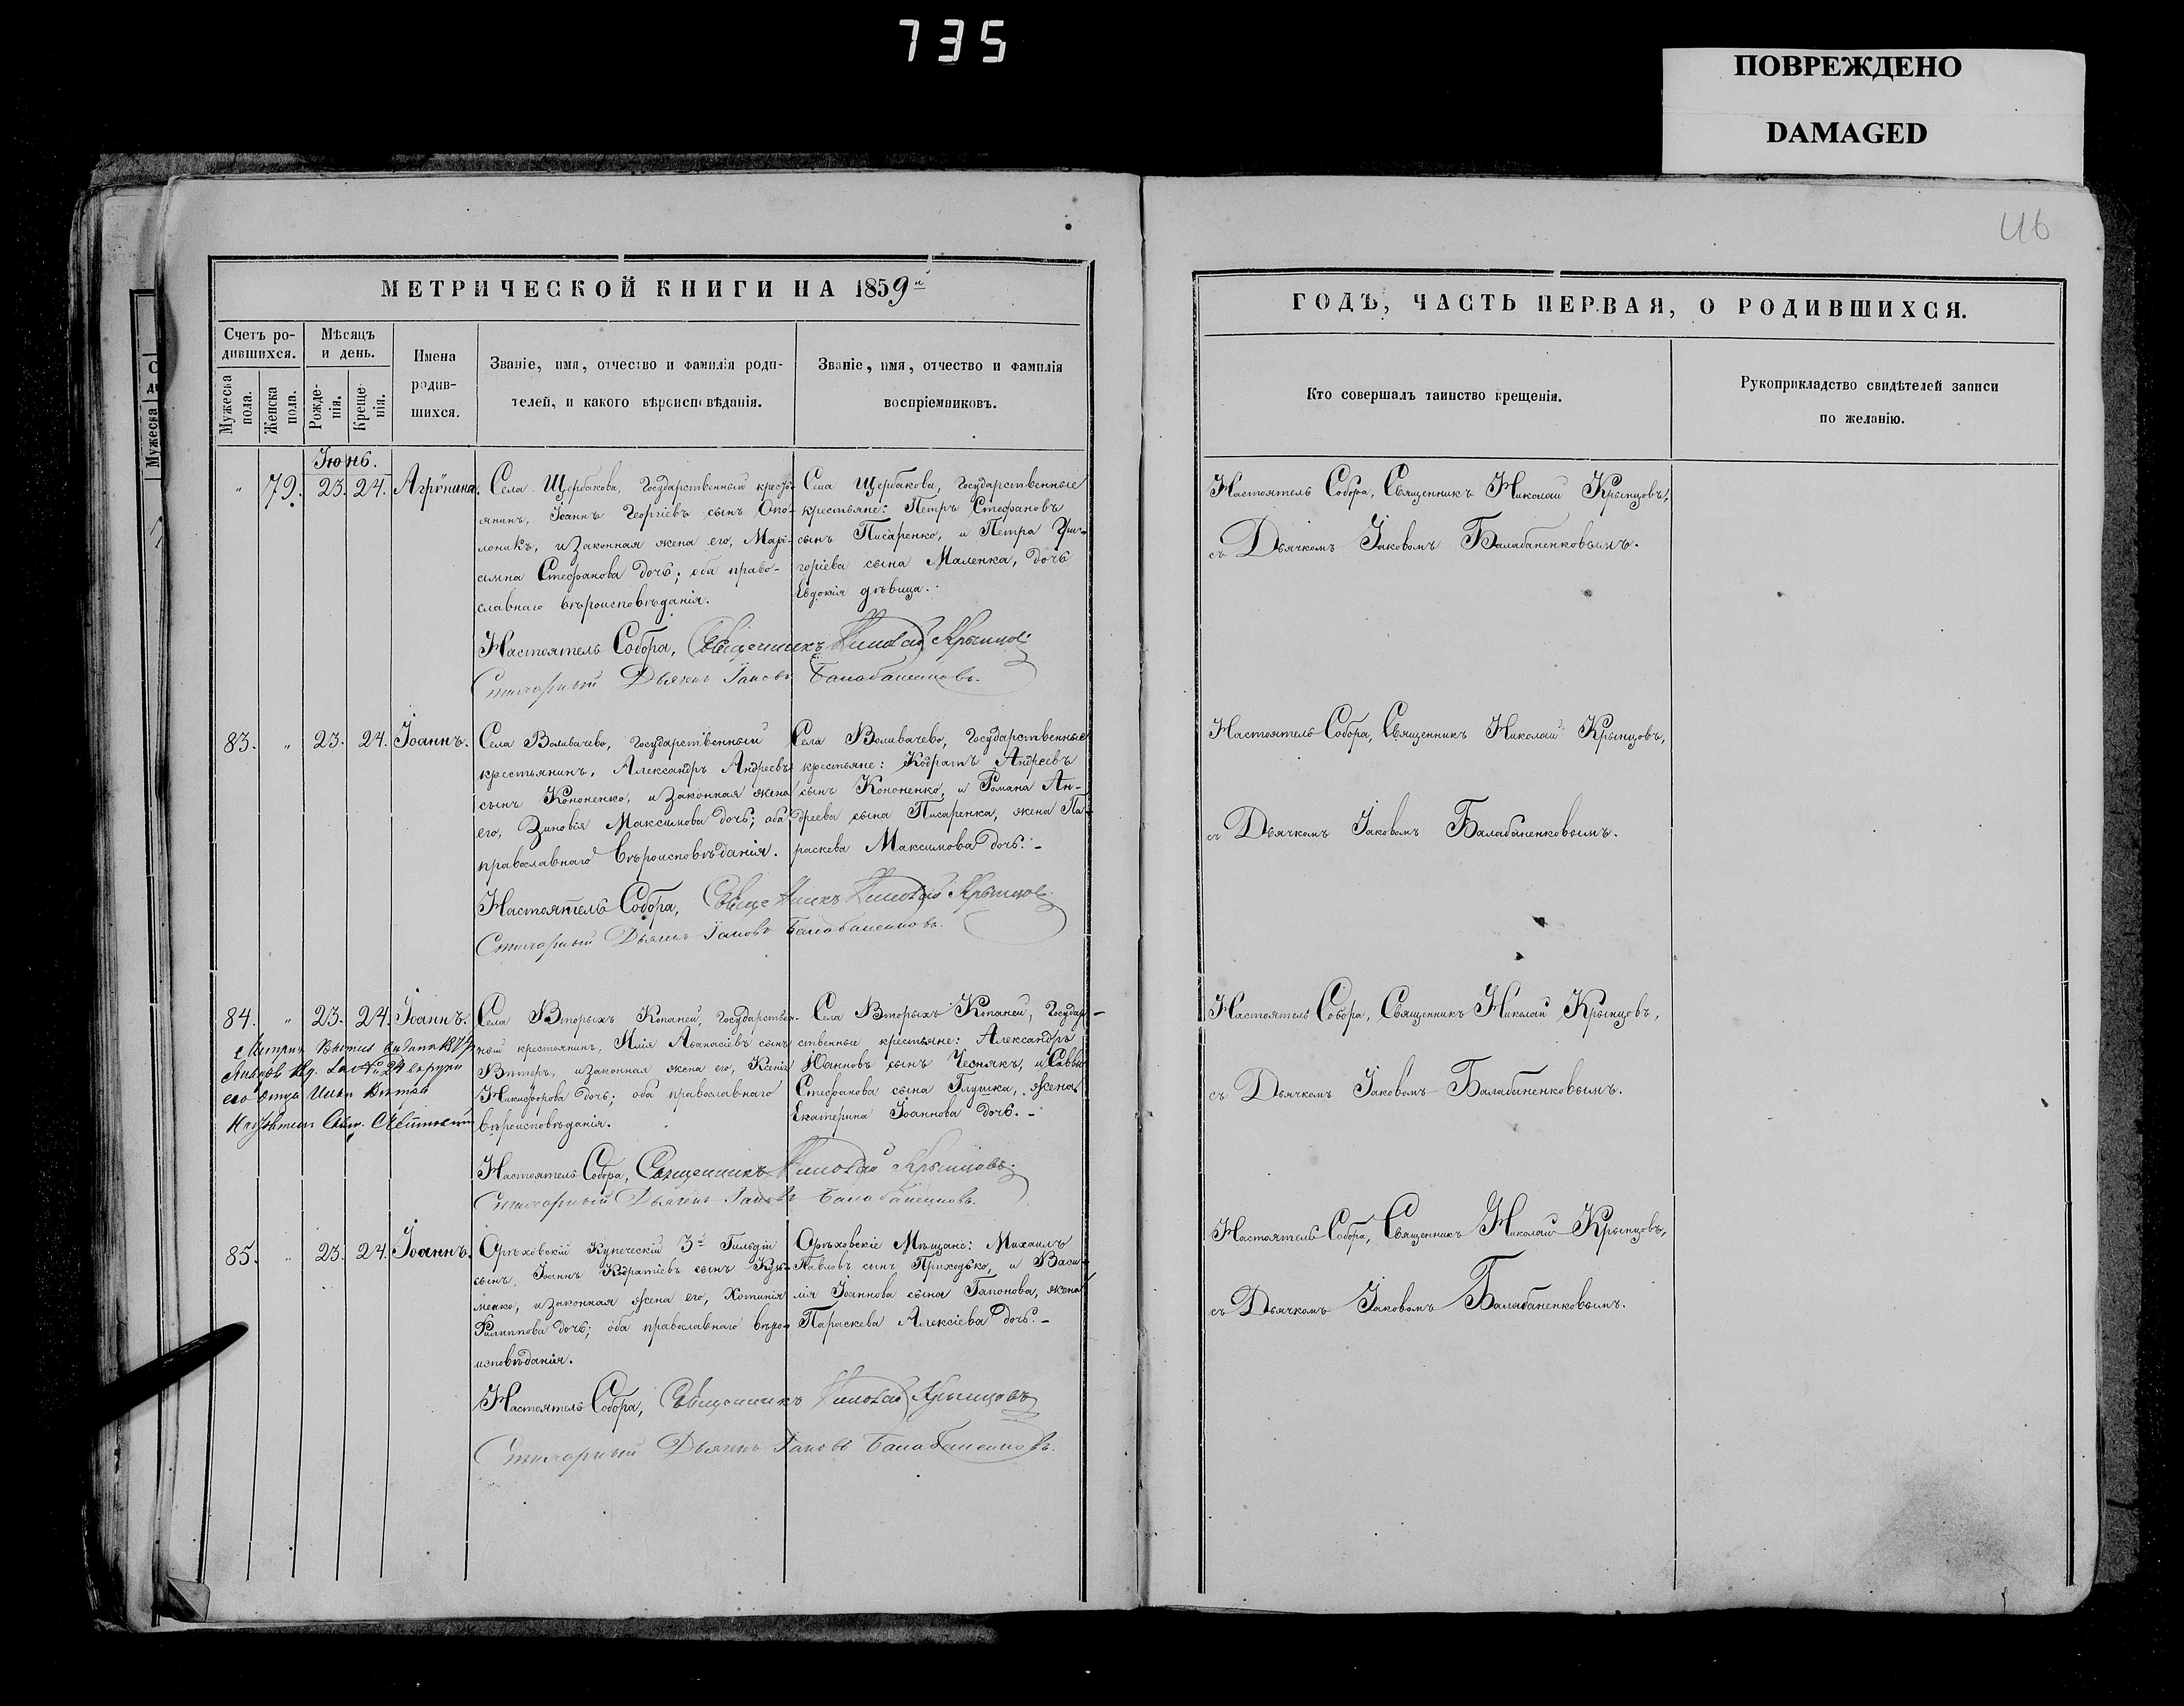 735
ПОВРЕЖДЕНО
DAMAGED
46
МЕТРИЧЕСКОЙ КНИГИ НА 1859й
Счетъ ро-
дившихся.
Мужеска пола.
Женска пола.
Мѣсяцъ
и день.
Рожде-
нія.
Креще-
нія.
Имена
родив-
шихся.
Званіе, имя, отчество и фамилія роди-
телей, и какого вѣроисповѣданія.
Званіе, имя, отчество и фамилія
воспріемниковъ.
Іюнь.
" 79. 23. 24. Агрѵпина.
Села Щербакова, Государственный кресть-
янинъ, Іоаннъ Георгіевъ сынъ Опо-
лоникъ, и законная жена его, Марі-
амна Стефанова дочь; оба право-
славнаго вѣроисповѣданія.
Села Щербакова, Государственные
крестьяне: Петръ Стефановъ
сынъ Писаренко, и Петра Гри-
горіева сына Маленка, дочь
Евдокія дѣвица.
Настоятель Собора, Священникъ Николай Крынцовъ
Стихарный Дьячекъ Іаковъ Балабаненковъ.
83. " 23. 24. Іоаннъ.
Села Воливачево, Государственный
крестьянинъ, Александръ Андреевъ
сынъ Кононенко, и законная жена
его, Зиновія Максимова дочь; оба
православнаго вѣроисповѣданія.
Села Воливачево, Государственные
крестьяне: Кодратъ Андреевъ
сынъ Кононенко, и Романа Ан-
дреева сына Писаренка, жена Па-
раскева Максимова дочь.
Настоятель Собора, Священникъ Николай Крынцовъ
Стихарный Дьячекъ Іаковъ Балабаненковъ.
84. " 23. 24. Іоаннъ.
Села Вторыхъ Копаней, Государствен-
ный крестьянинъ, Илія Аѳанасіевъ сынъ
и законная жена его, Ксенія
Никифорова дочь; оба православнаго
вѣроисповѣданія.
Села Вторыхъ Копаней, Государ-
ственные крестьяне: Александръ
Іоанновъ сынъ Чеснякъ, и Саввы
Стефанова сына Глушка, жена
Екатерина Іоаннова дочь.
его отца Ильи
Настоятель Собора, Священникъ Николай Крынцовъ
Стихарный Дьячекъ Іаковъ Балабаненковъ.
85. " 23. 24. Іоаннъ.
Орѣховскій Купеческій 3й Гильдіи
сынъ, Іоаннъ Кодратіевъ сынъ Кузь-
менко, и законная жена его, Хотинія
Филиппова дочь; оба православнаго вѣро-
исповѣданія.
Орѣховскіе Мѣщане: Михаилъ
Павловъ сынъ Приходько, и Васи-
лія Іоаннова сына Гапонова, жена
Параскева Алексіева дочь.
Настоятель Собора, Священникъ Николай Крынцовъ
Стихарный Дьячекъ Іаковъ Балабаненковъ.
ГОДЪ, ЧАСТЬ ПЕРВАЯ, О РОДИВШИХСЯ.
Кто совершалъ таинство крещенія.
Рукоприкладство свидѣтелей записи
по желанію.
Настоятель Собора, Священникъ Николай Крынцовъ,
съ Дьячкомъ Іаковомъ Балабаненковымъ.
Настоятель Собора, Священникъ Николай Крынцовъ,
съ Дьячкомъ Іаковомъ Балабаненковымъ.
Настоятель Собора, Священникъ Николай Крынцовъ,
съ Дьячкомъ Іаковомъ Балабаненковымъ.
Настоятель Собора, Священникъ Николай Крынцовъ,
съ Дьячкомъ Іаковомъ Балабаненковымъ.